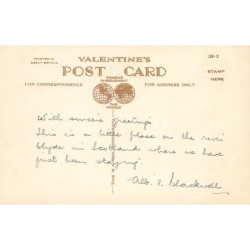 PRINTED IN
GREAT BRITAIN
VALENTINE'S
37-2
POST CARD
STAMP
HERE
FAMOUS
THROUGHOUT
FOR CORRESPONDENCE
FOR ADDRESS ONLY
THE
WORLD
With sincere greetings.
This is a little place on the river
Clyde in Scotland where we have
just been staying.
Alb. & Blackwell